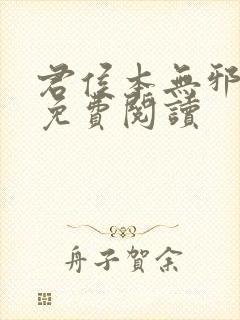 君侯本無邪
免費閱讀
舟子賀余